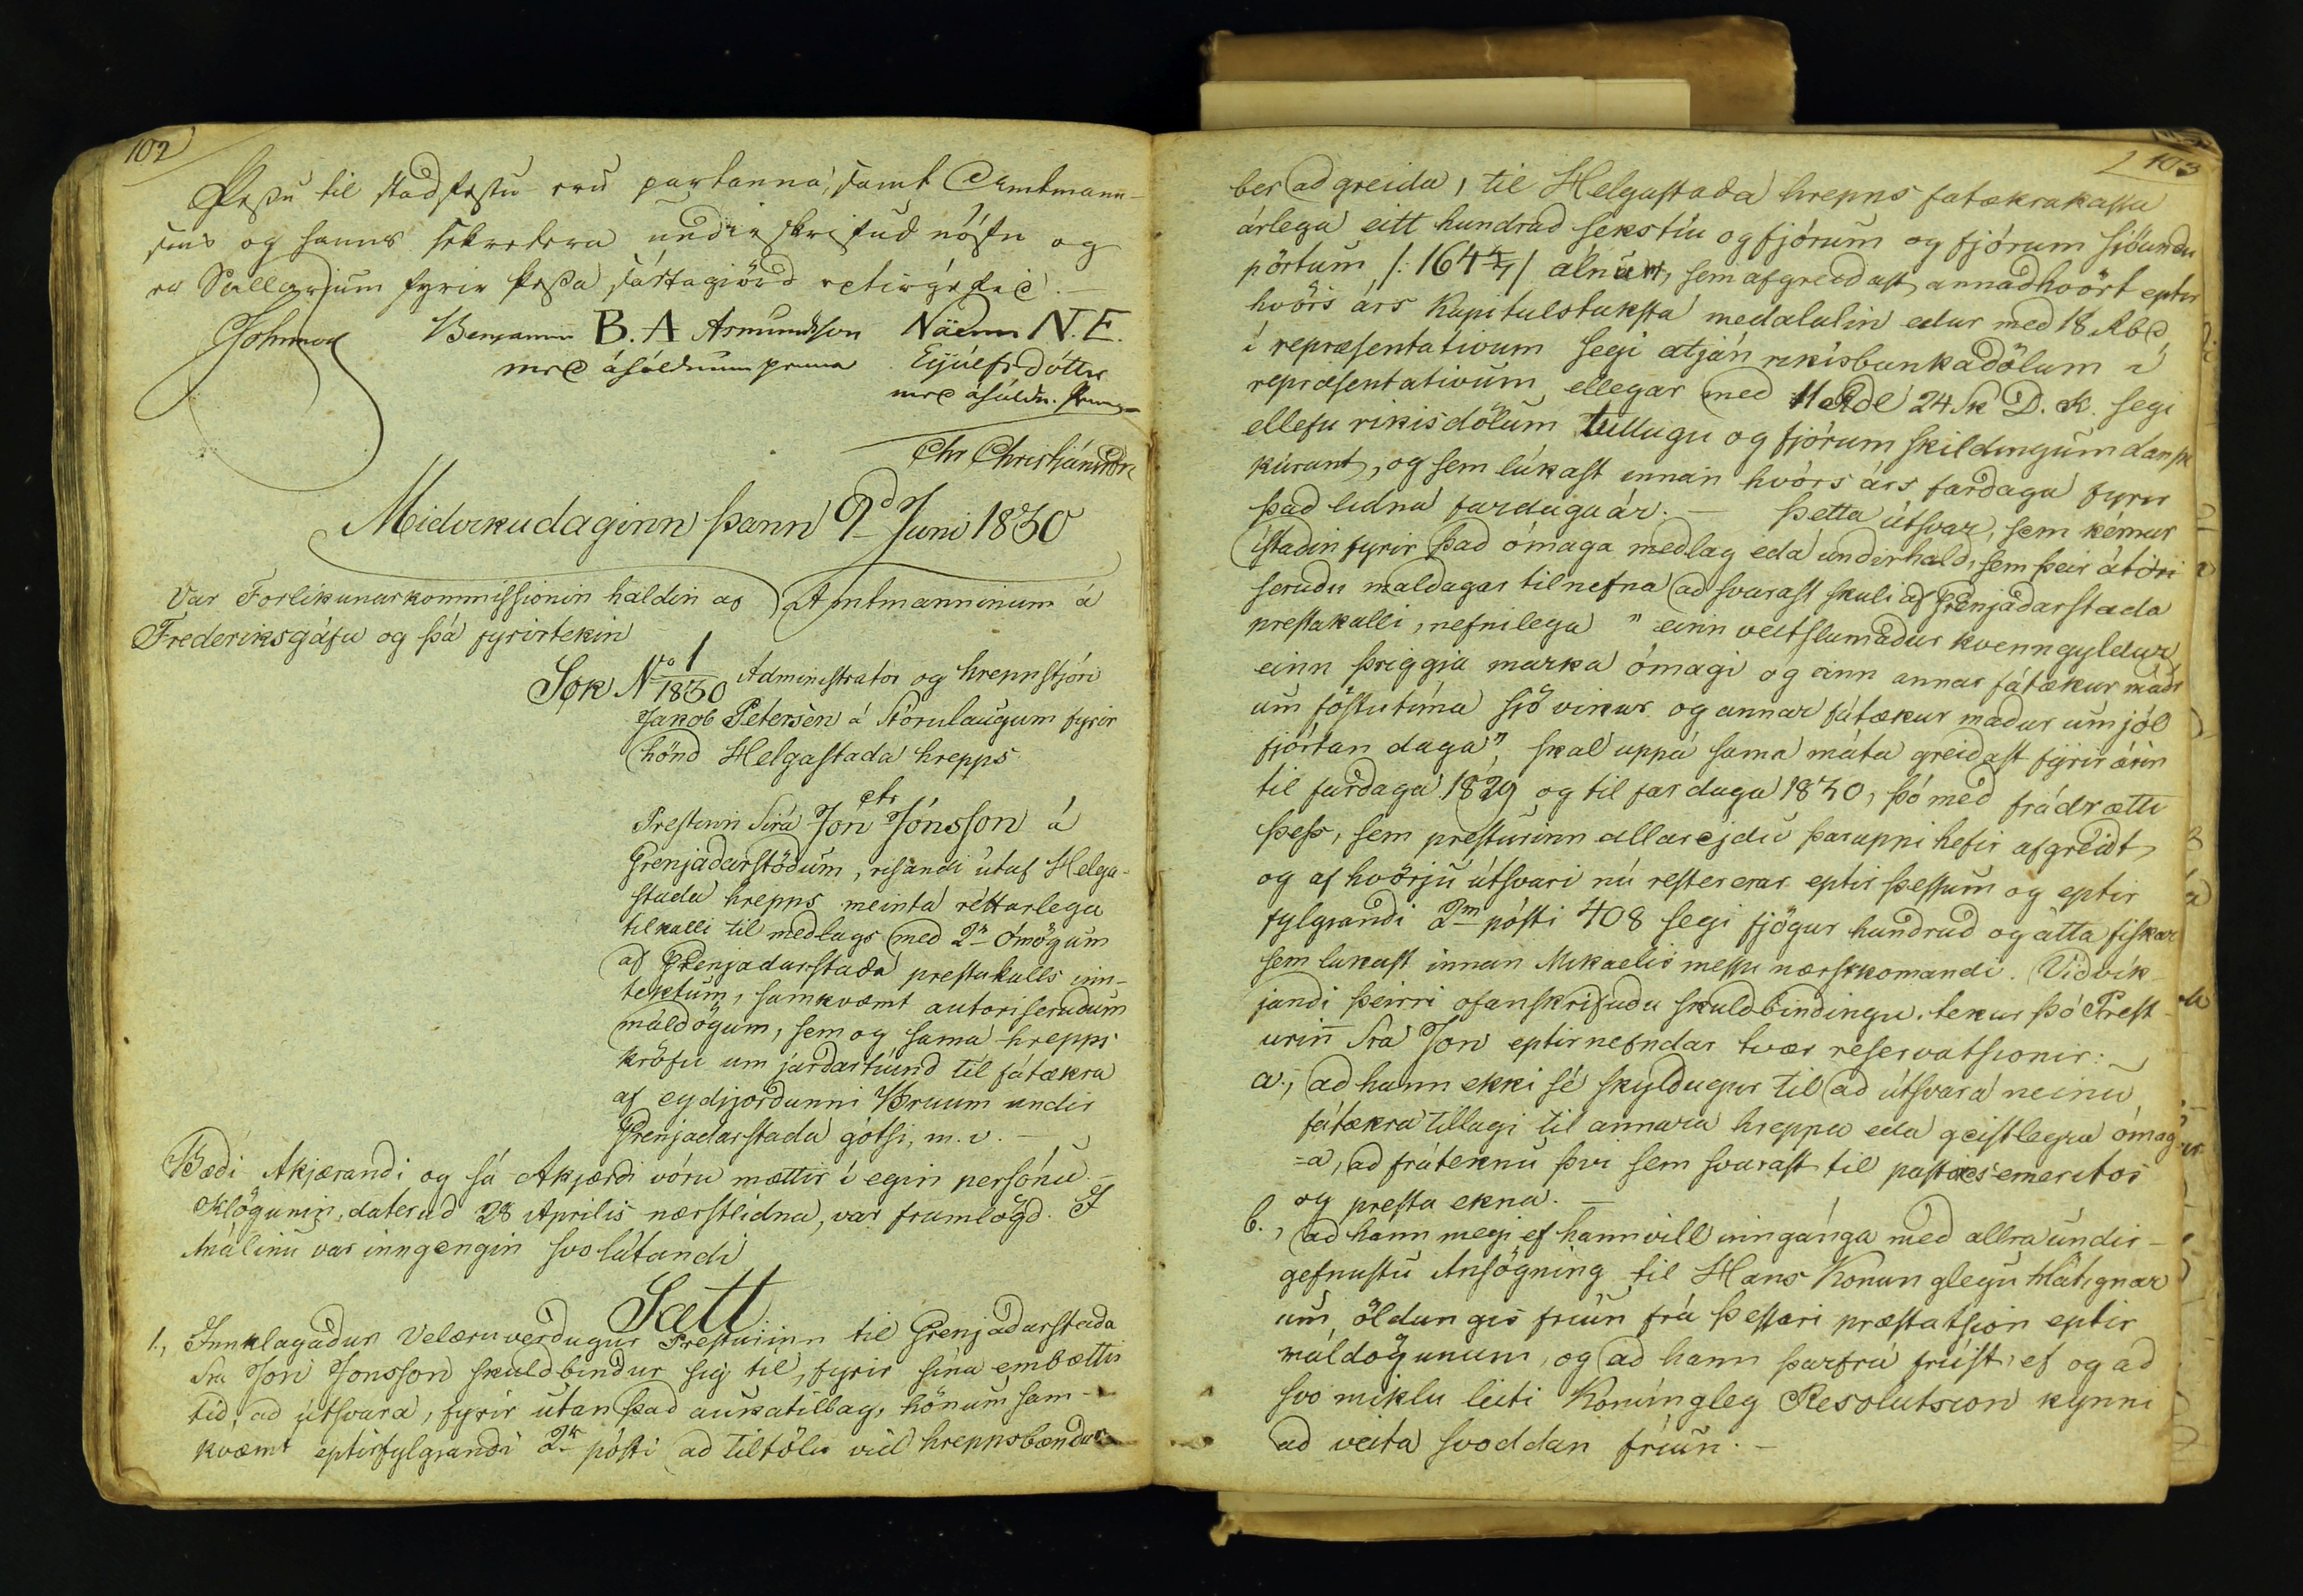 102
Þessu til stadfestu eru partanna, samt Amtmann-
sins og hanns sekretera undirskrifud nöfn og
er Sallarium fyrir þessa sáttagiörd eptirgéfid. —
Johnson Benjamin B. A Asmundsson Näemi N. E.
med áhöldnum penna Eyjúlfsdótter
med áhöldn. penna
Chr Christjánsson
Midvikudaginn þann 9d Juni 1830
Var Forlikunarkommissionin haldin af Amtmanninum á
Frederiksgáfu og þá fyrirtekin
Sök No 1/1830 Administrator og hreppstjóri
Jakob Petersen á Stórulaugum fyrir
hönd Helgastada hrepps
ctr
Prestinn Sira Jon Jónsson á
Grenjadarstödum, rísandi útaf Helga-
stada hrepps meinta réttarlega
tilkalli til medlags med 2r ómögum
af Grenjadarstada prestakalls inn-
tektum, samkvæmt autoriserudum
máldögum, sem og sama hrepps
kröfu um jardartiund til fátækra
af eydijördunni Bruum undir
Grenjadarstada gótsi, m. v. —
Bædi Akjærandi og sá Akjærdi vóru mættir í egin persónu. —
Klögunin, daterud 28 Aprilis næstlidna, var framlögd. I
Málinu var inngengin svo látandi
Sætt
1., Innklagadur Velæruverdugur Presturinn til Grenjadarstada
Sra Jon Jonsson skuldbindur sig til, fyrir sína embættis
tíd, ad útsvara, fyrir utan það aukatillag, hönum sam-
kvæmt eptirfylgjandi 2r pósti ad tiltölu vid hreppsbændur
103
ber ad greida, til Helgastada hrepps fatækrakassa
árlega eitt hundrad sekstíu og fjórum og fjórum sjöundu
pörtum /: 164 4/7 / álnum, sem afgreidast, annadhvört eptir
hvörs árs Kapitulstaksta medalalin edur med 18 Rbd
i repræsentativum segi átján rikisbankadölum í
repræsentativum ellegar med 11 Rdl 24 Sk D. K. segi
ellefu rikisdölum tuttugu og fjórum skildingum dansk
kúrant, og sem lúkast innan hvörs árs fardaga fyrir
það lidna fardaga ár. — Þetta útsvar, sem kémur
ístadin fyrir það ómaga medlag eda underhald, sem þeir átóri
serudu maldagar tilnefna ad svarast skuli af Grenjadarstada
prestakalli, nefnilega " einn veitslumadur kvenngyldur
einn þriggja marka ómagi og einn annar fátækur mádr
um föstutíma sjö vikur og annar fátækur madur um jól
fjórtan daga", skal uppá sama máta greidast fyrir árin
til fardaga 1829 og til fardaga 1830, þó med frádrætti
þess, sem presturinn allareidu þaruppi hefir afgreidt,
og af hvörju útsvari nú resterar eptir þessum og eptir
fylgjandi 2m pósti 408 segi fjögur hundrud og átta fiskar
sem lukast innan Mikaelis messu nærstkomandi. Vidvík-
jandi þeirri ofanskrifudu skuldbindingu, tekur þó Prest-
urinn Sra Jon eptirnefndar tvær reservatsionir:
a., ad hann ekki sé skyldugur til ad útsvara neinu
fátækra tillagi til annara hreppa eda geistlegra ómag-
=a, ad fráteknu því sem svarast til pastores emeritos
og presta ekna. —
b., ad hann megi ef hann vill innganga med allra undir-
gefnustu Ansögning til Hans Konunglegu Hátignar
um öldungis fríun frá þessari præstatsion eptir
máldögunum, og ad hann þarfrá fríist, ef og ad
svo miklu leiti Konungleg Resolutsion kynni
ad veita svoddan fríun. —